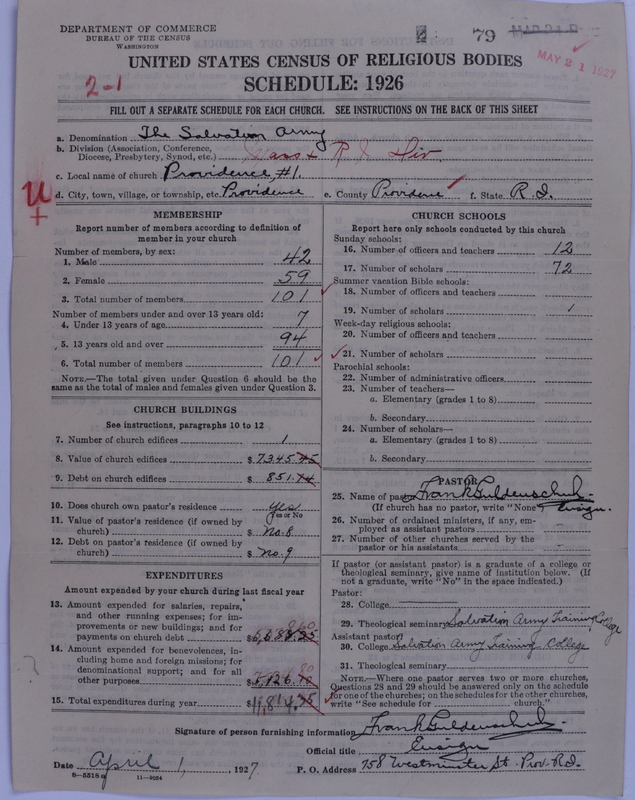 DEPARTMENT OF COMMERCE
BUREAU OF THE CENSUS
WASHINGTON
79
MAY 21 1927
UNITED STATES CENSUS OF RELIGIOUS BODIES
2-1
SCHEDULE: 1926
FILL OUT A SEPARATE SCHEDULE FOR EACH CHURCH. SEE INSTRUCTIONS ON THE BACK OF THIS SHEET
a. Denomination The Salvation Army
b. Division (Association, Conference, Diocese, Presbytery, Synod, etc.) R I Div.
c. Local name of church Providence, #1.
d. City, town, village, or township, etc. Providence e. County Providence f. State R. I.
MEMBERSHIP
Report number of members according to definition of
member in your church
Number of members, by sex:
1. Male 42
2. Female 59
3. Total number of members 101
Number of members under and over 13 years old:
4. Under 13 years of age 7
5. 13 years old and over 94
6. Total number of members 101
NOTE.—The total given under Question 6 should be
same as the total of males and females given under Question 3.
CHURCH BUILDINGS
See instructions, paragraphs 10 to 12
7. Number of church edifices 1
8. Value of church edifices $ 7345
9. Debt on church edifices $ 851.
10. Does church own pastor's residence Yes
Yes or No
11. Value of pastor's residence (if owned by
church) $ No. 8
12. Debt on pastor's residence (if owned by
church) $ No. 9
EXPENDITURES
Amount expended by your church during last fiscal year
13. Amount expended for salaries, repairs,
and other running expenses; for im-
provements or new buildings; and for
payments on church debt $
14. Amount expended for benevolences,
including home and foreign missions; for
denominational support; and for all
other purposes $
15. Total expenditures during year $
CHURCH SCHOOLS
Report here only schools conducted by this church
Sunday schools:
16. Number of officers and teachers 12
17. Number of scholars 72
Summer vacation Bible schools:
18. Number of officers and teachers
19. Number of scholars
Week-day religious schools:
20. Number of officers and teachers
21. Number of scholars
Parochial schools:
22. Number of administrative officers
23. Number of teachers—
a. Elementary (grades 1 to 8)
b. Secondary
24. Number of scholars—
a. Elementary (grades 1 to 8)
b. Secondary
PASTOR
25. Name of pastor Frank Guldenschuh.
(If church has no pastor, write "None") Ensign.
26. Number of ordained ministers, if any, em-
ployed as assistant pastors
27. Number of other churches served by the
pastor or his assistants
If pastor (or assistant pastor) is a graduate of a college or
theological seminary, give name of institution below. (If
not a graduate, write "No" in the space indicated.)
Pastor:
28. College
29. Theological seminary Salvation Army Training College
Assistant pastor:
30. College Salvation Army Training College
31. Theological seminary
NOTE.—Where one pastor serves two or more churches,
Questions 28 and 29 should be answered only on the schedule
for one of the churches; on the schedules for the other churches,
write "See schedule for church."
Signature of person furnishing information Frank Guldenschuh.
Official title Ensign
Date April 1, 1927. P. O. Address 758 Westminster St. Prov. R.I.
8—5518a 11—9024